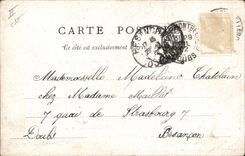 CARTE POSTALE
Ce côté est exclusivement
Mademoiselle Madeleine Chatelain
chez Madame Maillet
7 quai de Strasbourg 7
Doubs Besançon